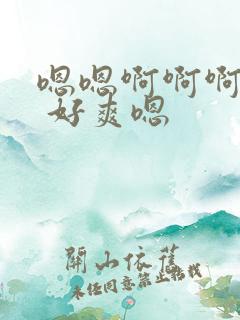 嗯嗯啊啊啊
好爽嗯
關山依舊
未经同意禁止转载